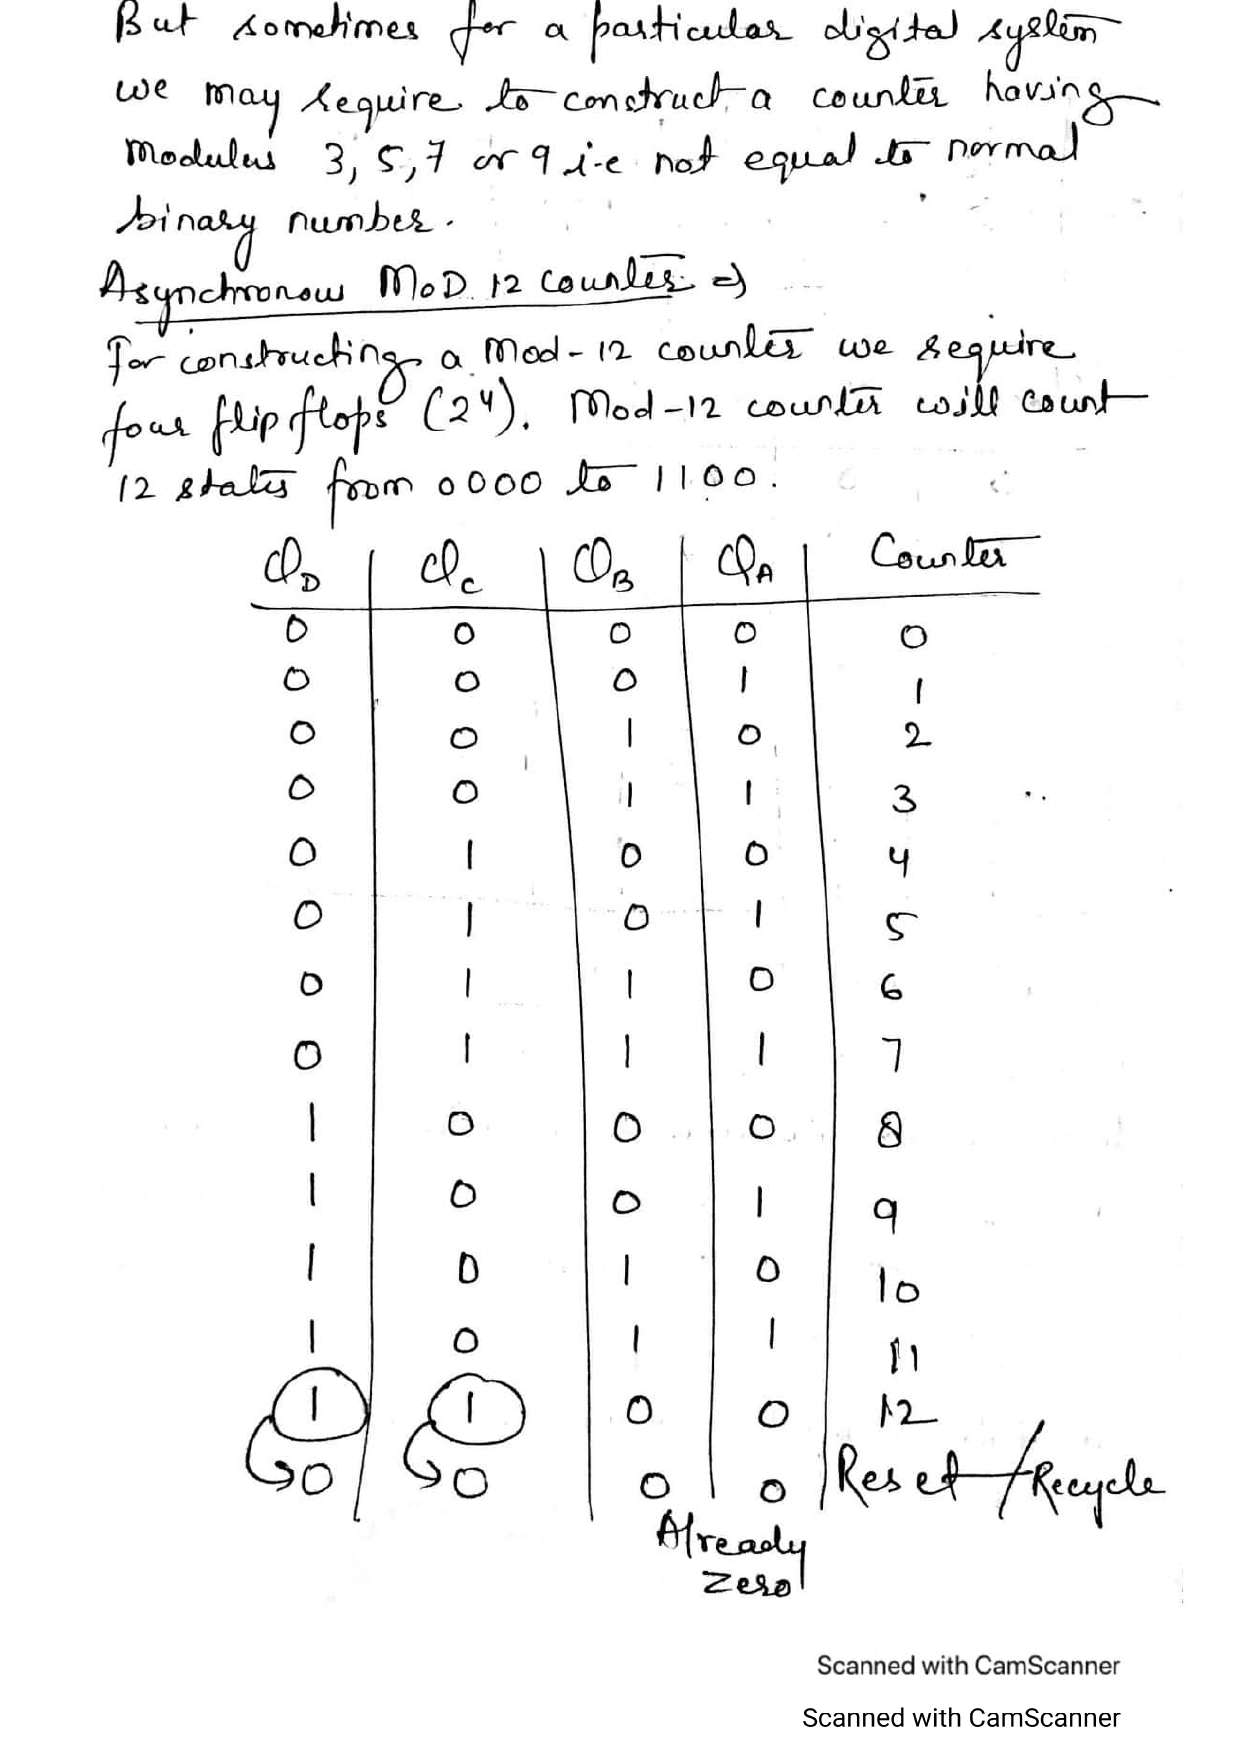 But sometimes for a particular digital system
we may require to construct a counter having
Modulus 3, 5, 7 or 9 i.e not equal to normal
binary number.
Asynchronous MOD 12 Counter ⇒
For constructing a Mod-12 counter we require
four flip flops (2⁴). Mod-12 counter will count
12 states from 0000 to 1100.
Q_D | Q_C | Q_B | Q_A | Counter
0 0 0 0 0
0 0 0 1 1
0 0 1 0 2
0 0 1 1 3
0 1 0 0 4
0 1 0 1 5
0 1 1 0 6
0 1 1 1 7
1 0 0 0 8
1 0 0 1 9
1 0 1 0 10
1 0 1 1 11
1 1 0 0 12
0 0 0 0 Reset/Recycle
Already
Zero
Scanned with CamScanner
Scanned with CamScanner